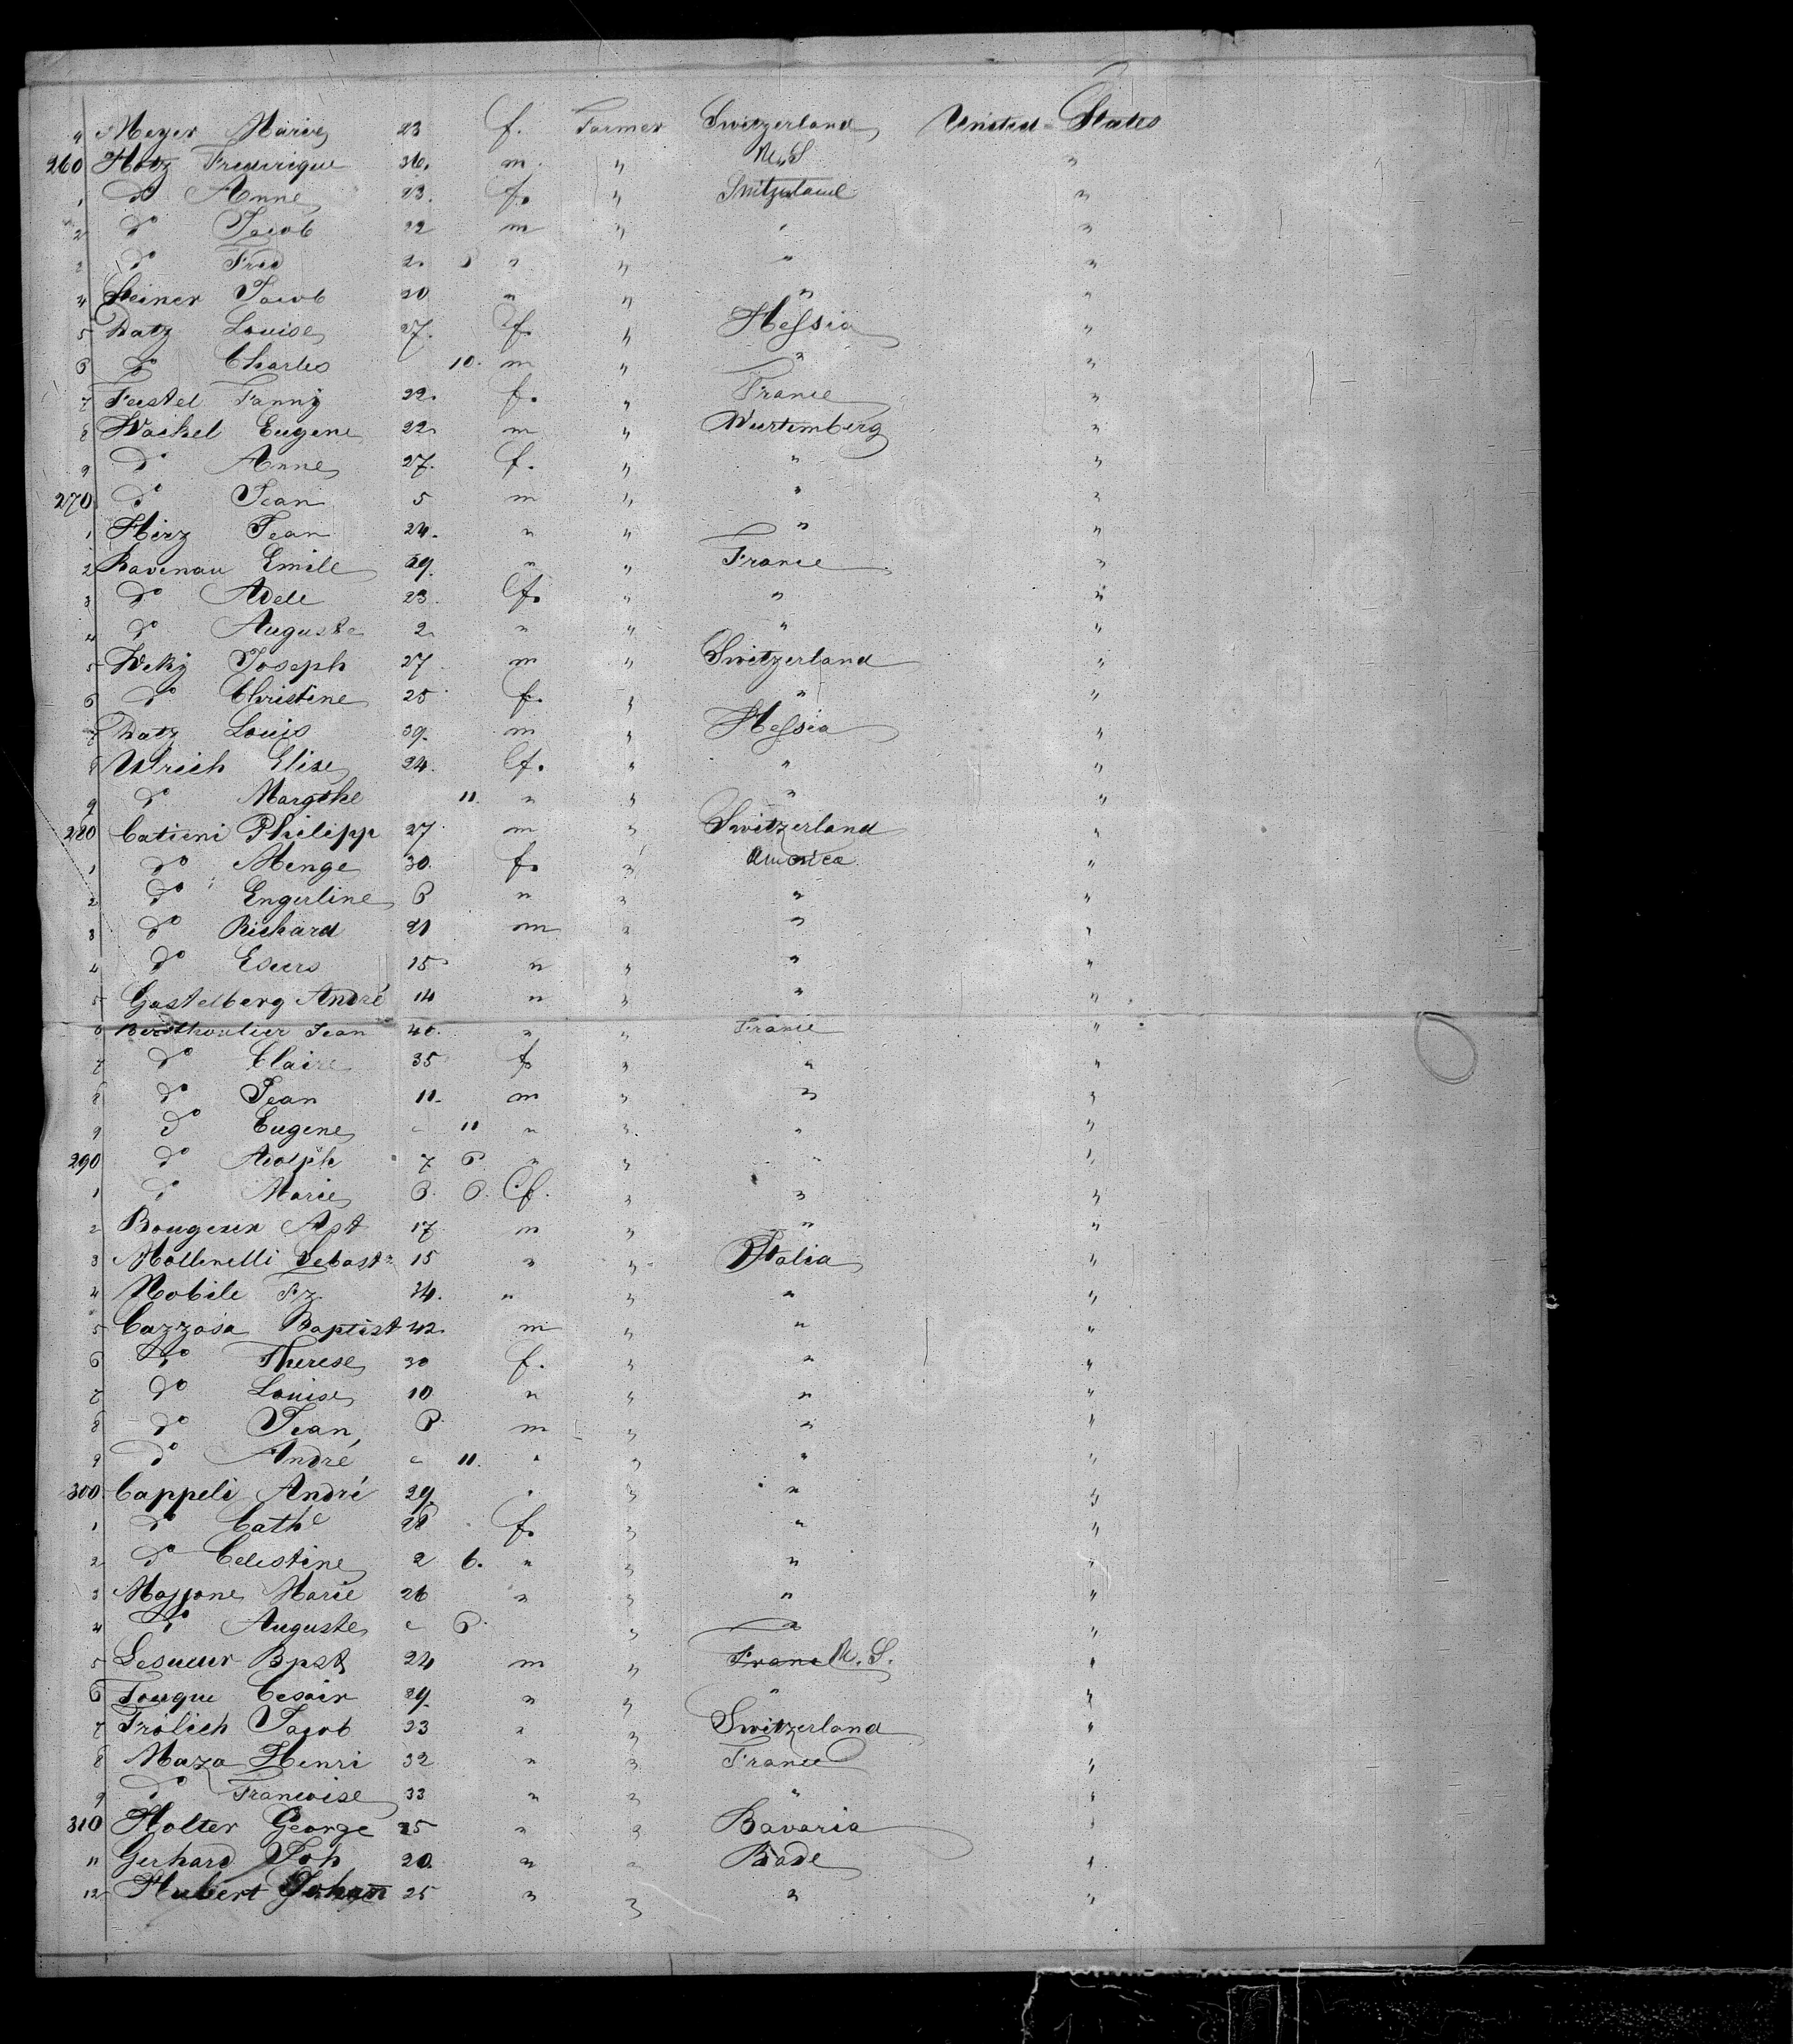 9 Meyer Marie 23 f. Farmer Switzerland United States
260 Hotz Frederique 36. m. " U.S "
1 do Anne 23. f. " Switzerland "
2 do Jacob 22 m " " "
3 do Fred 2. " " " "
4 Steiner Jacob 20 " " " "
5 Datz Louise 27. f. " Hessia "
6 do Charles 10. m " " "
7 Festel Fanny 22. f. " France "
8 Wackel Eugene 22 m " Wurtemberg "
9 do Anne 27. f. " " "
270 do Jean 5 m " " "
1 Hirz Jean 24. " " " "
2 Ravenau Emile 29. " " France "
3 do Adele 23. f. " " "
4 do Auguste 2 " " " "
5 Weky Joseph 27 m " Switzerland "
6 do Christine 25 f. " " "
7 Datz Louis 39. m " Hessia "
8 Ulrich Elise 24. f. " " "
9 do Margthe 11. " " " "
280 Catieni Philipp 27 m " Switzerland "
1 do Menge 30. f. " America "
2 do Engerline 6 " " " "
3 do Richard 21 m " " "
4 do 15 " " " "
5 Gastelberg André 14 " " " "
6 Berdthoulier Jean 40. " " France "
7 do Claire 35 f " " "
8 do Jean 11. m " " "
9 do Eugene " 11 " " " "
290 do Adolph 7 6 " " " "
1 do Marie 6. 6. f. " " "
2 Bougeur Apt 17 m " " "
3 Mollinelli Sebast 15 " " Italia "
4 Nobile Fz. 24. " " " "
5 Cazzosa Baptist 42 m " " "
6 do Therese 30 f. " " "
7 do Louise 10 " " " "
8 do Jean 6 m " " "
9 do André " 11. " " " "
300 Cappeli André 29. " " " "
1 do Cathe 28 f. " " "
2 do Celestine 2 6. " " " "
3 Massone Marie 26 " " " "
4 do Auguste " 6 " " "
5 Lesueur Bpst 24 m " Franc U.S. "
6 Fouque Cesair 29. " " " "
7 Frölich Jacob 23 " " Switzerland "
8 Maza Henri 32 " " France "
9 do Francoise 33 " " " "
310 Holter George 25 " " Bavaria "
11 Gerhard Joh 20. " " Bade "
12 Hubert Johann 25 " " " "